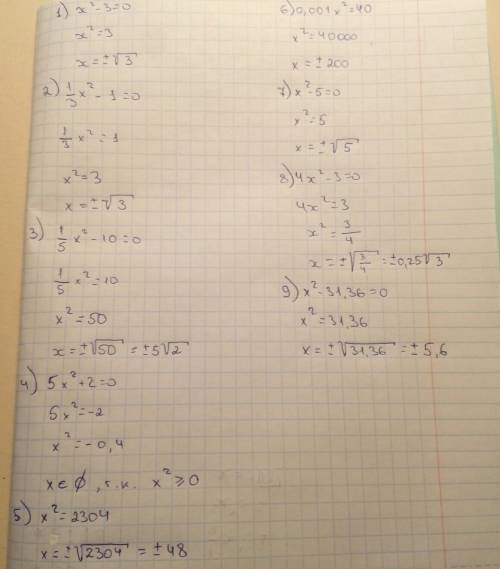 1) x²-3=0
x²=3
x=±√3
2) 1/3 x²-1=0
1/3 x²=1
x²=3
x=±√3
3) 1/5 x²-10=0
1/5 x²=10
x²=50
x=±√50=±5√2
4) 5x²+2=0
5x²=-2
x²=-0,4
x∈∅, т.к. x²≥0
5) x²=2304
x=±√2304=±48
6) 0,001x²=40
x²=40000
x=±200
7) x²-5=0
x²=5
x=±√5
8) 4x²-3=0
4x²=3
x²=3/4
x=±√3/4=±0,25√3
9) x²-31,36=0
x²=31,36
x=±√31,36=±5,6